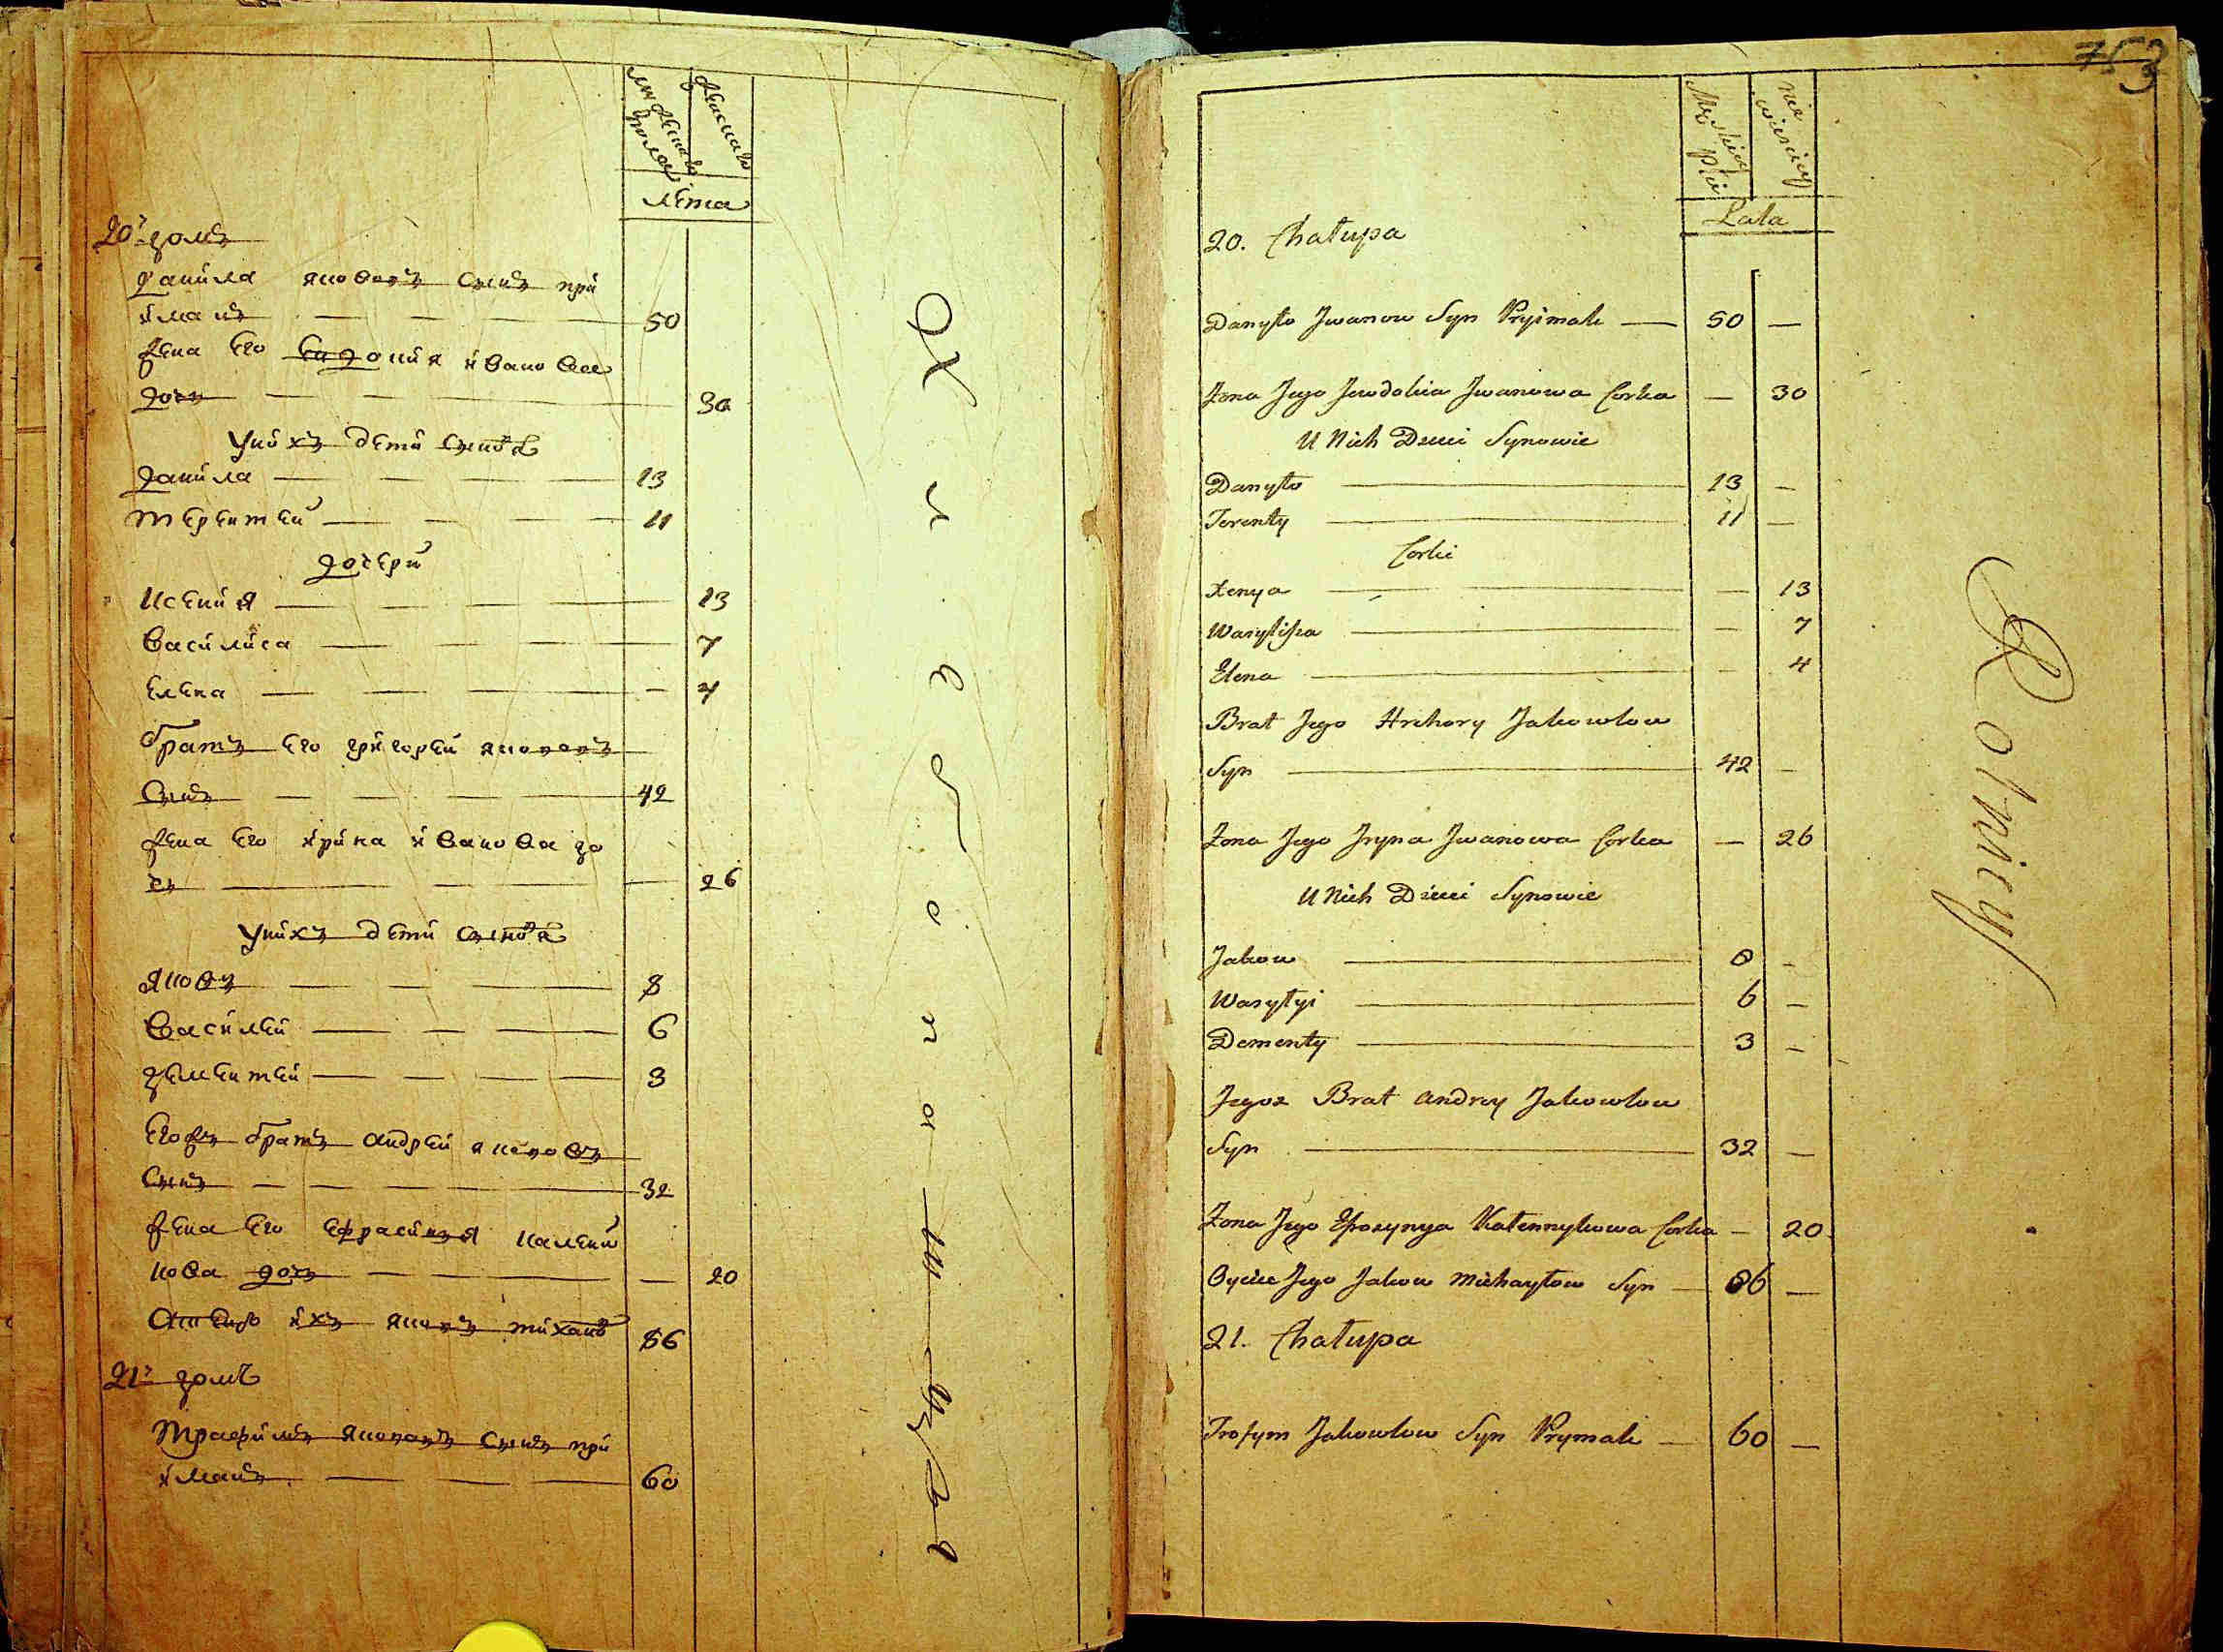 мужеска полу
женска
лета
20й домъ
данила яковлевъ сынъ при
ймакъ 50
жена его евдокия иванова
дочь 30
У нихъ дети сынов
данила 13
терентей 11
дочери
ксения 13
василиса 7
елена 4
братъ его григорей яковлевъ
сынъ 42
жена его ирина иванова до
чь 26
У нихъ дети сынов
яковъ 8
василей 6
дементей 3
егожъ братъ андрей яковлевъ
сынъ 32
жена его калени
кова дочь 20
отецъ ихъ яковъ 86
21й домъ
трафимъ яковлевъ сынъ при
ймакъ 60
753
Męskiey Płci
Niewieściey
Lata
20. Chałupa
Danyło Jwanow Syn Pryimak — 50 —
Żona Jego Jewdokia Jwanowa Corka — 30
U Nich Dzieci Synowie
Danyło — 13 —
Terenty — 11 —
Corki
Xenya — 13
Wasylissa — 7
Elena — 4
Brat Jego Hrehory Jakowlow
Syn — 42 —
Żona Jego Jryna Jwanowa Corka — 26
U Nich Dzieci Synowie
Jakow — 8 —
Wasylyi — 6 —
Dementy — 3 —
Jegoż Brat Andrey Jakowlow
Syn — 32 —
Żona Jego Efrosynya Kalennykowa Corka — 20
Oyciec Jego Jakow Michayłow Syn — 86 —
21. Chałupa
Trofym Jakowlow Syn Prymak — 60 —
Rolnicy